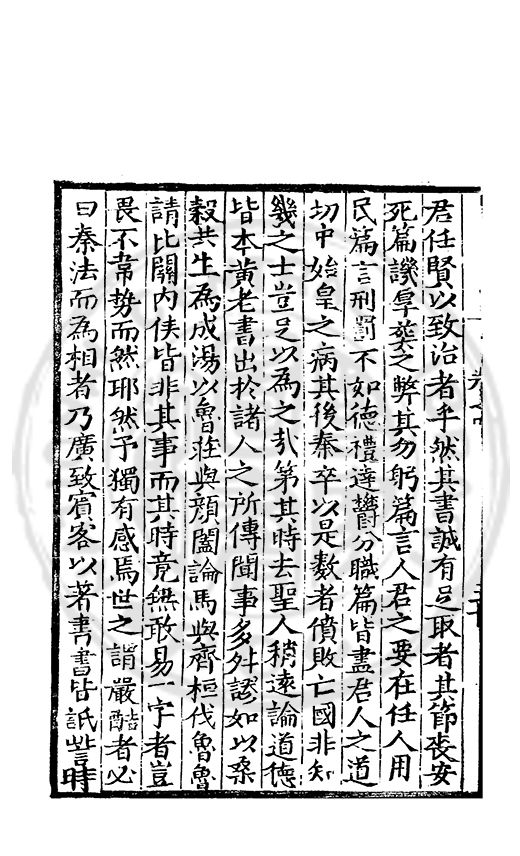 君任賢以致治者乎然其書誠有足取者其節喪安
死篇譏厚葬之弊其勿躬篇言人君之要在任人用
民篇言刑罰不如德禮達鬱分職篇皆盡君人之道
切中始皇之病其後秦卒以是數者僨敗亡國非知
幾之士豈足以為之哉第其時去聖人稍遠論道德
皆本黃老書出於諸人之所傳聞事多舛謬如以桑
穀共生為成湯以魯莊與顏闔論馬與齊桓伐魯魯
請比關內侯皆非其事而其時竟無敢易一字者豈
畏不韋勢而然耶然予獨有感焉世之謂嚴酷者必
曰秦法而為相者乃廣致賓客以著書書皆詆訾時